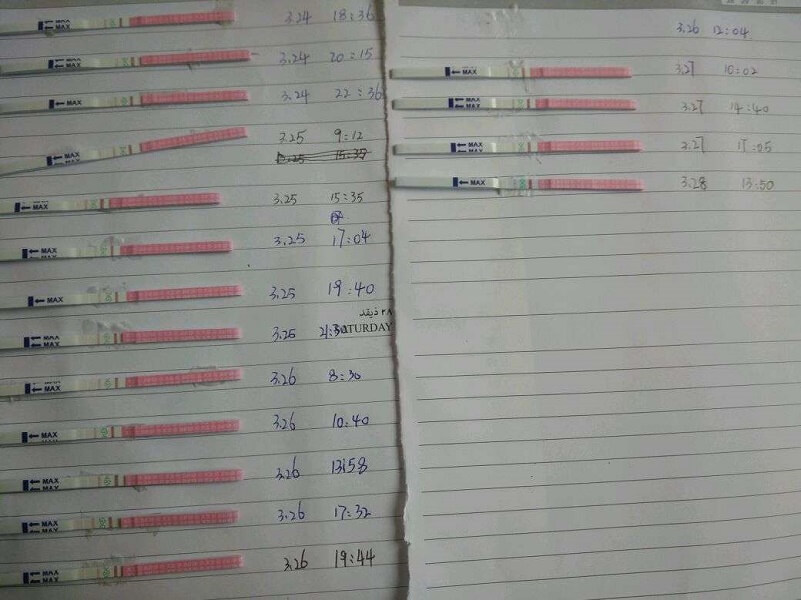 MAX 3.24 18:36
MAX 3.24 20:15
MAX 3.24 22:36
MAX 3.25 9:12
3.25 15:37
MAX 3.25 15:35
MAX 3.25 17:04
MAX 3.25 19:40
٢٨ ذيقعد
MAX 3.25 SATURDAY
MAX 3.26 8:30
MAX 3.26 10:40
MAX 3.26 13:58
MAX 3.26 17:32
MAX 3.26 19:44
3.26 12:04
MAX 3.27 10:02
MAX 3.27 14:40
MAX 3.27 17:05
MAX 3.28 13:50